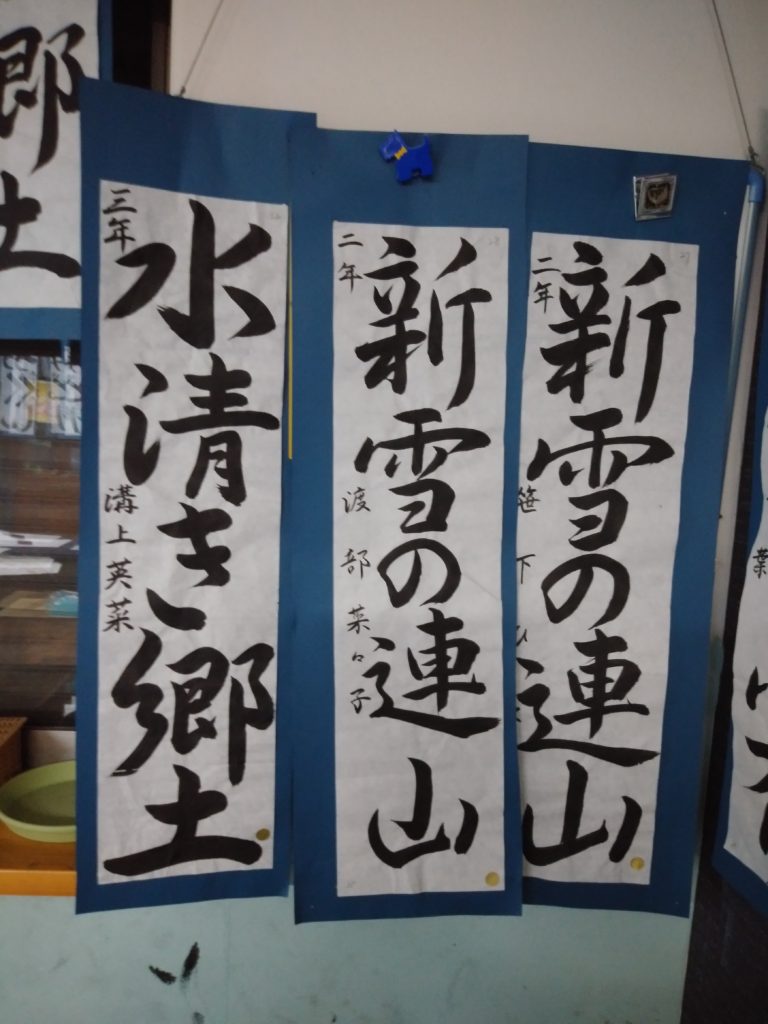 三年
水清き郷土
溝上英菜
二年
新雪の連山
渡部菜々子
二年
新雪の連山
笹下
郷土
葉